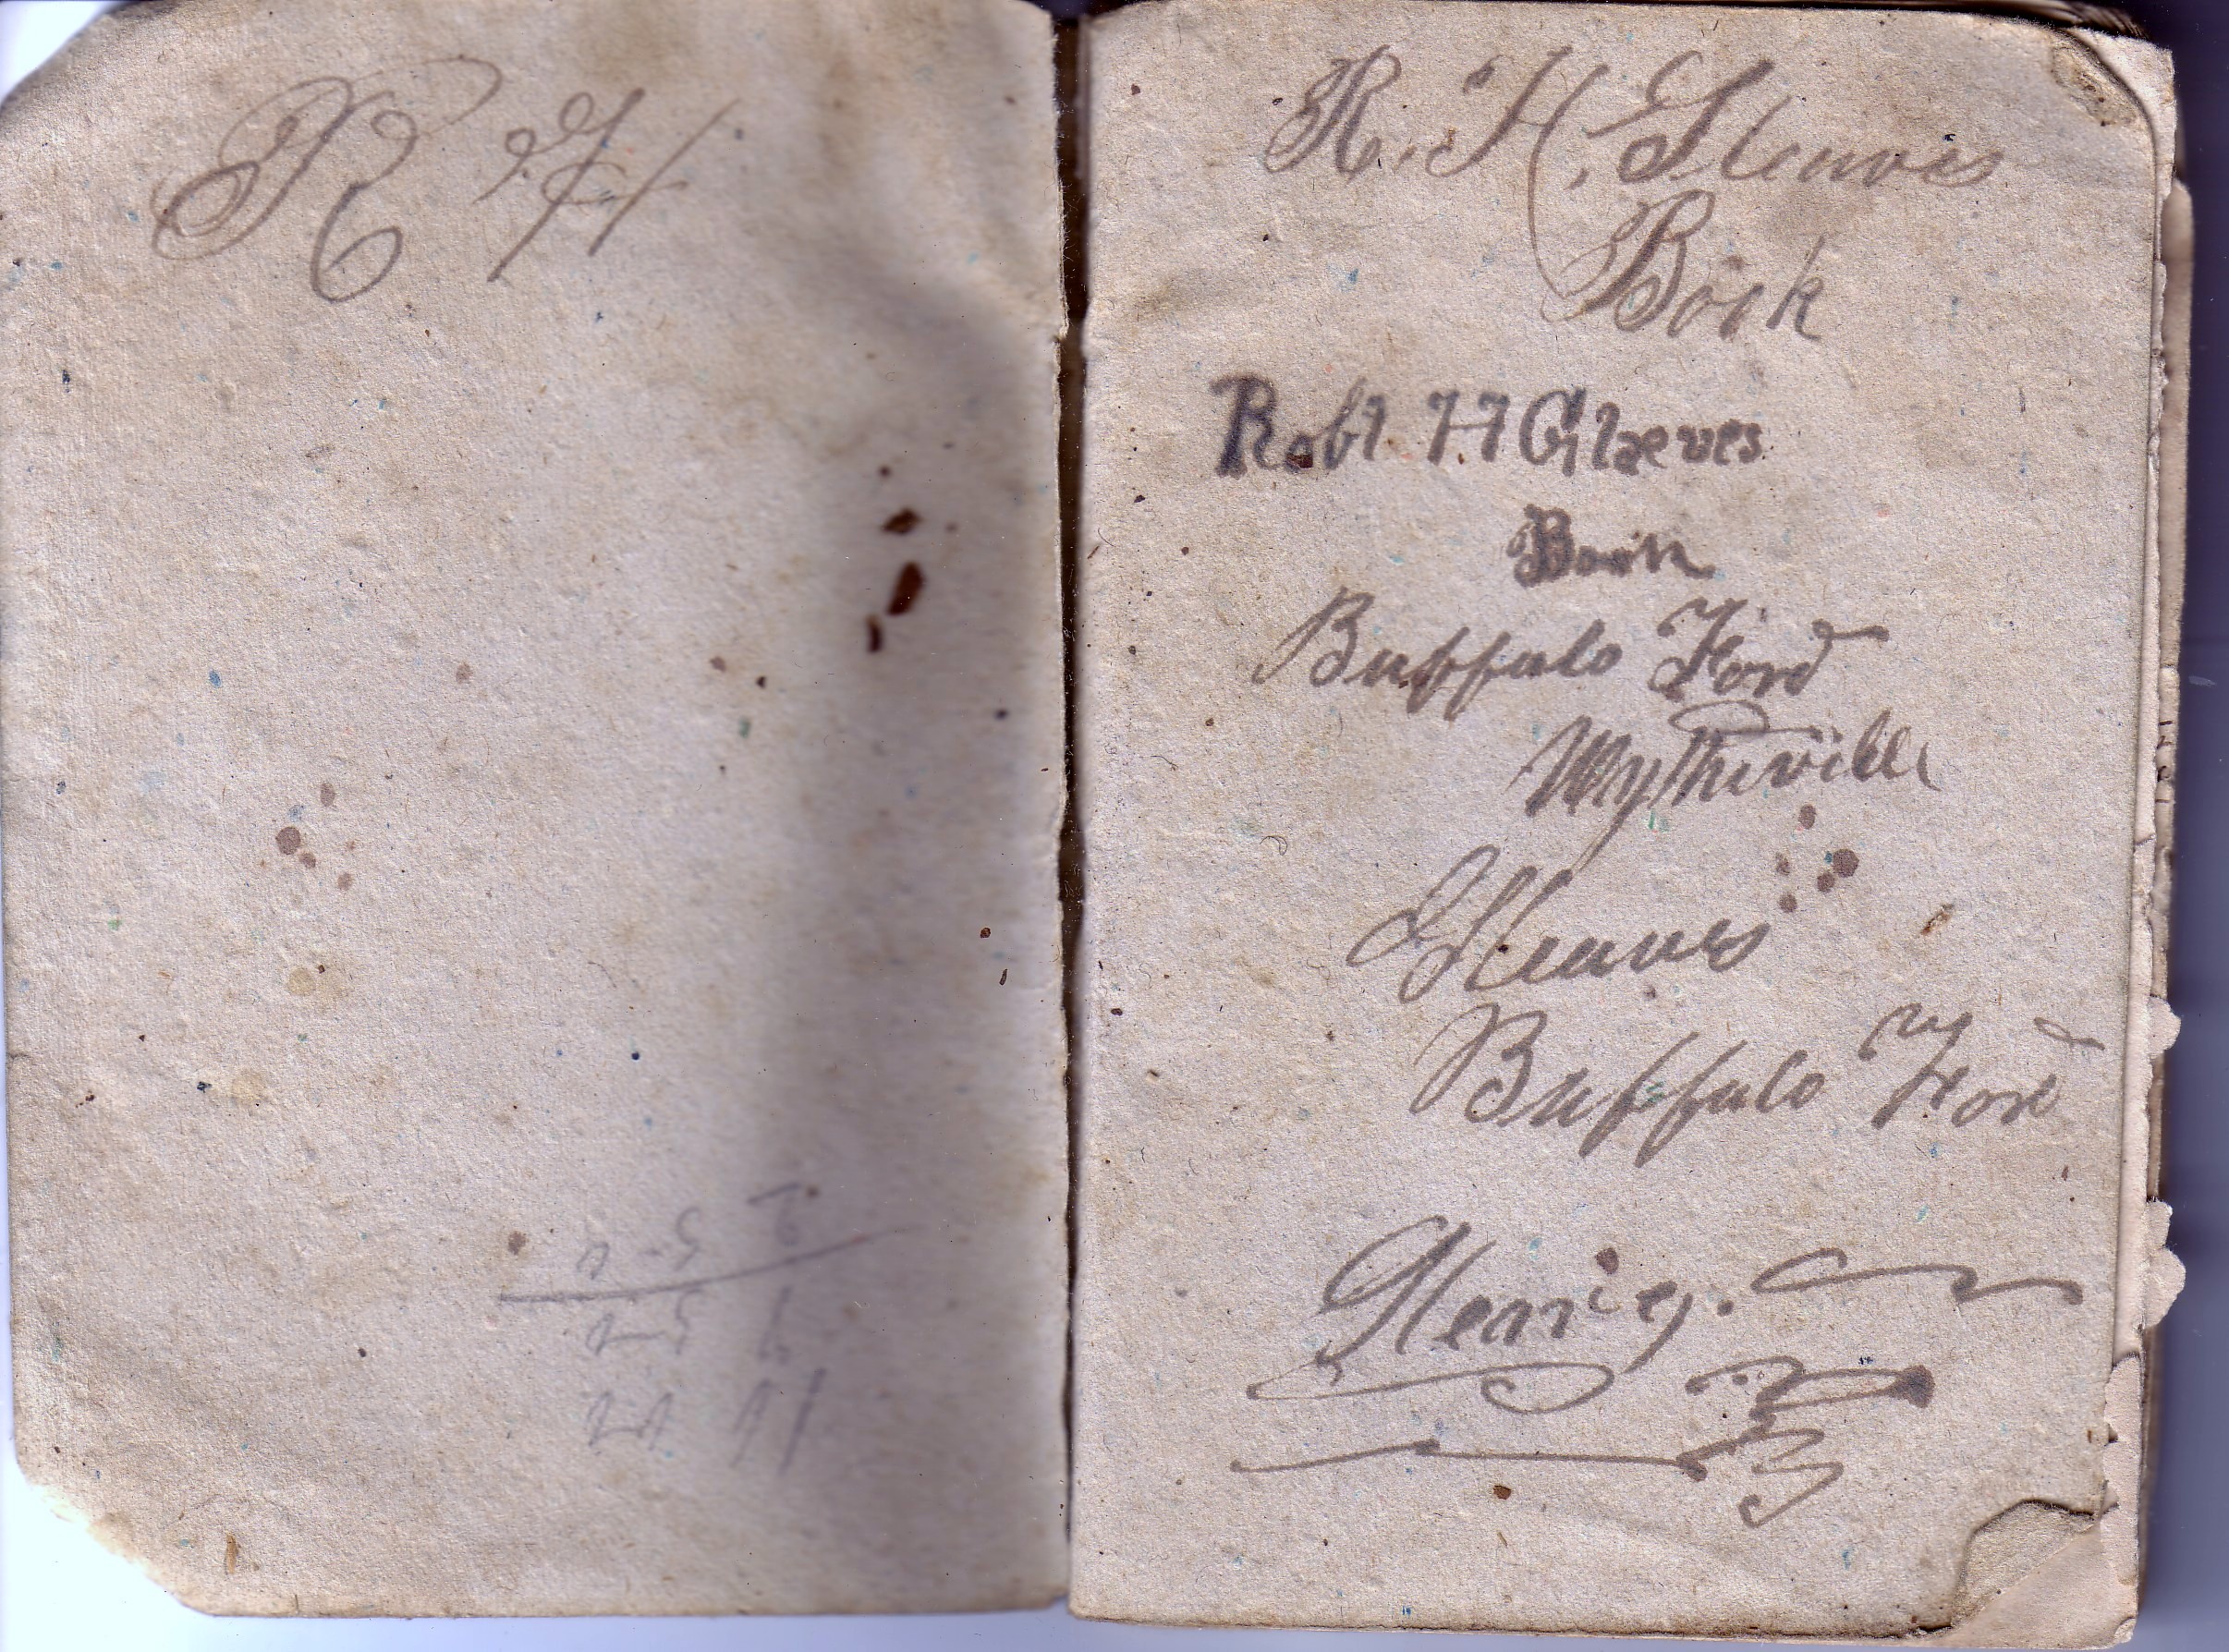 R H
R. H. Gleaves
Book
Robt H Glaeves
Book
Buffalo Ford
Wytheville
Gleaves
Buffalo Ford
Henry.